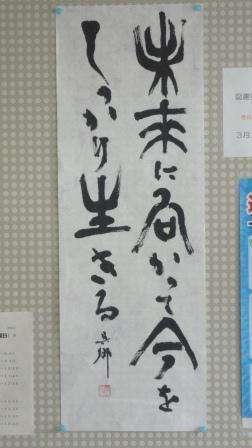 未来に向かって今を
しっかり生きる
3月